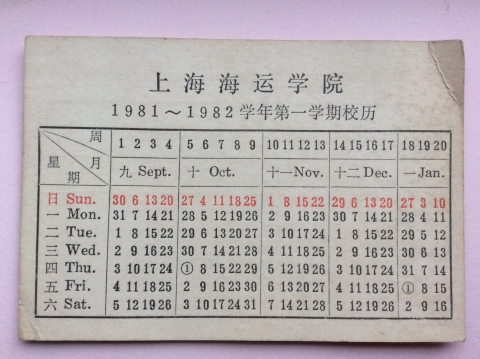 上海海运学院
1981～1982学年第一学期校历
周 1 2 3 4 5 6 7 8 9 10 11 12 13 14 15 16 17 18 19 20
星期 月 九 Sept. 十 Oct. 十一 Nov. 十二 Dec. 一 Jan.
日 Sun. 30 6 13 20 27 4 11 18 25 1 8 15 22 29 6 13 20 27 3 10
一 Mon. 31 7 14 21 28 5 12 19 26 2 9 16 23 30 7 14 21 28 4 11
二 Tue. 1 8 15 22 29 6 13 20 27 3 10 17 24 1 8 15 22 29 5 12
三 Wed. 2 9 16 23 30 7 14 21 28 4 11 18 25 2 9 16 23 30 6 13
四 Thu. 3 10 17 24 ① 8 15 22 29 5 12 19 26 3 10 17 24 31 7 14
五 Fri. 4 11 18 25 2 9 16 23 30 6 13 20 27 4 11 18 25 ① 8 15
六 Sat. 5 12 19 26 3 10 17 24 31 7 14 21 28 5 12 19 26 2 9 16